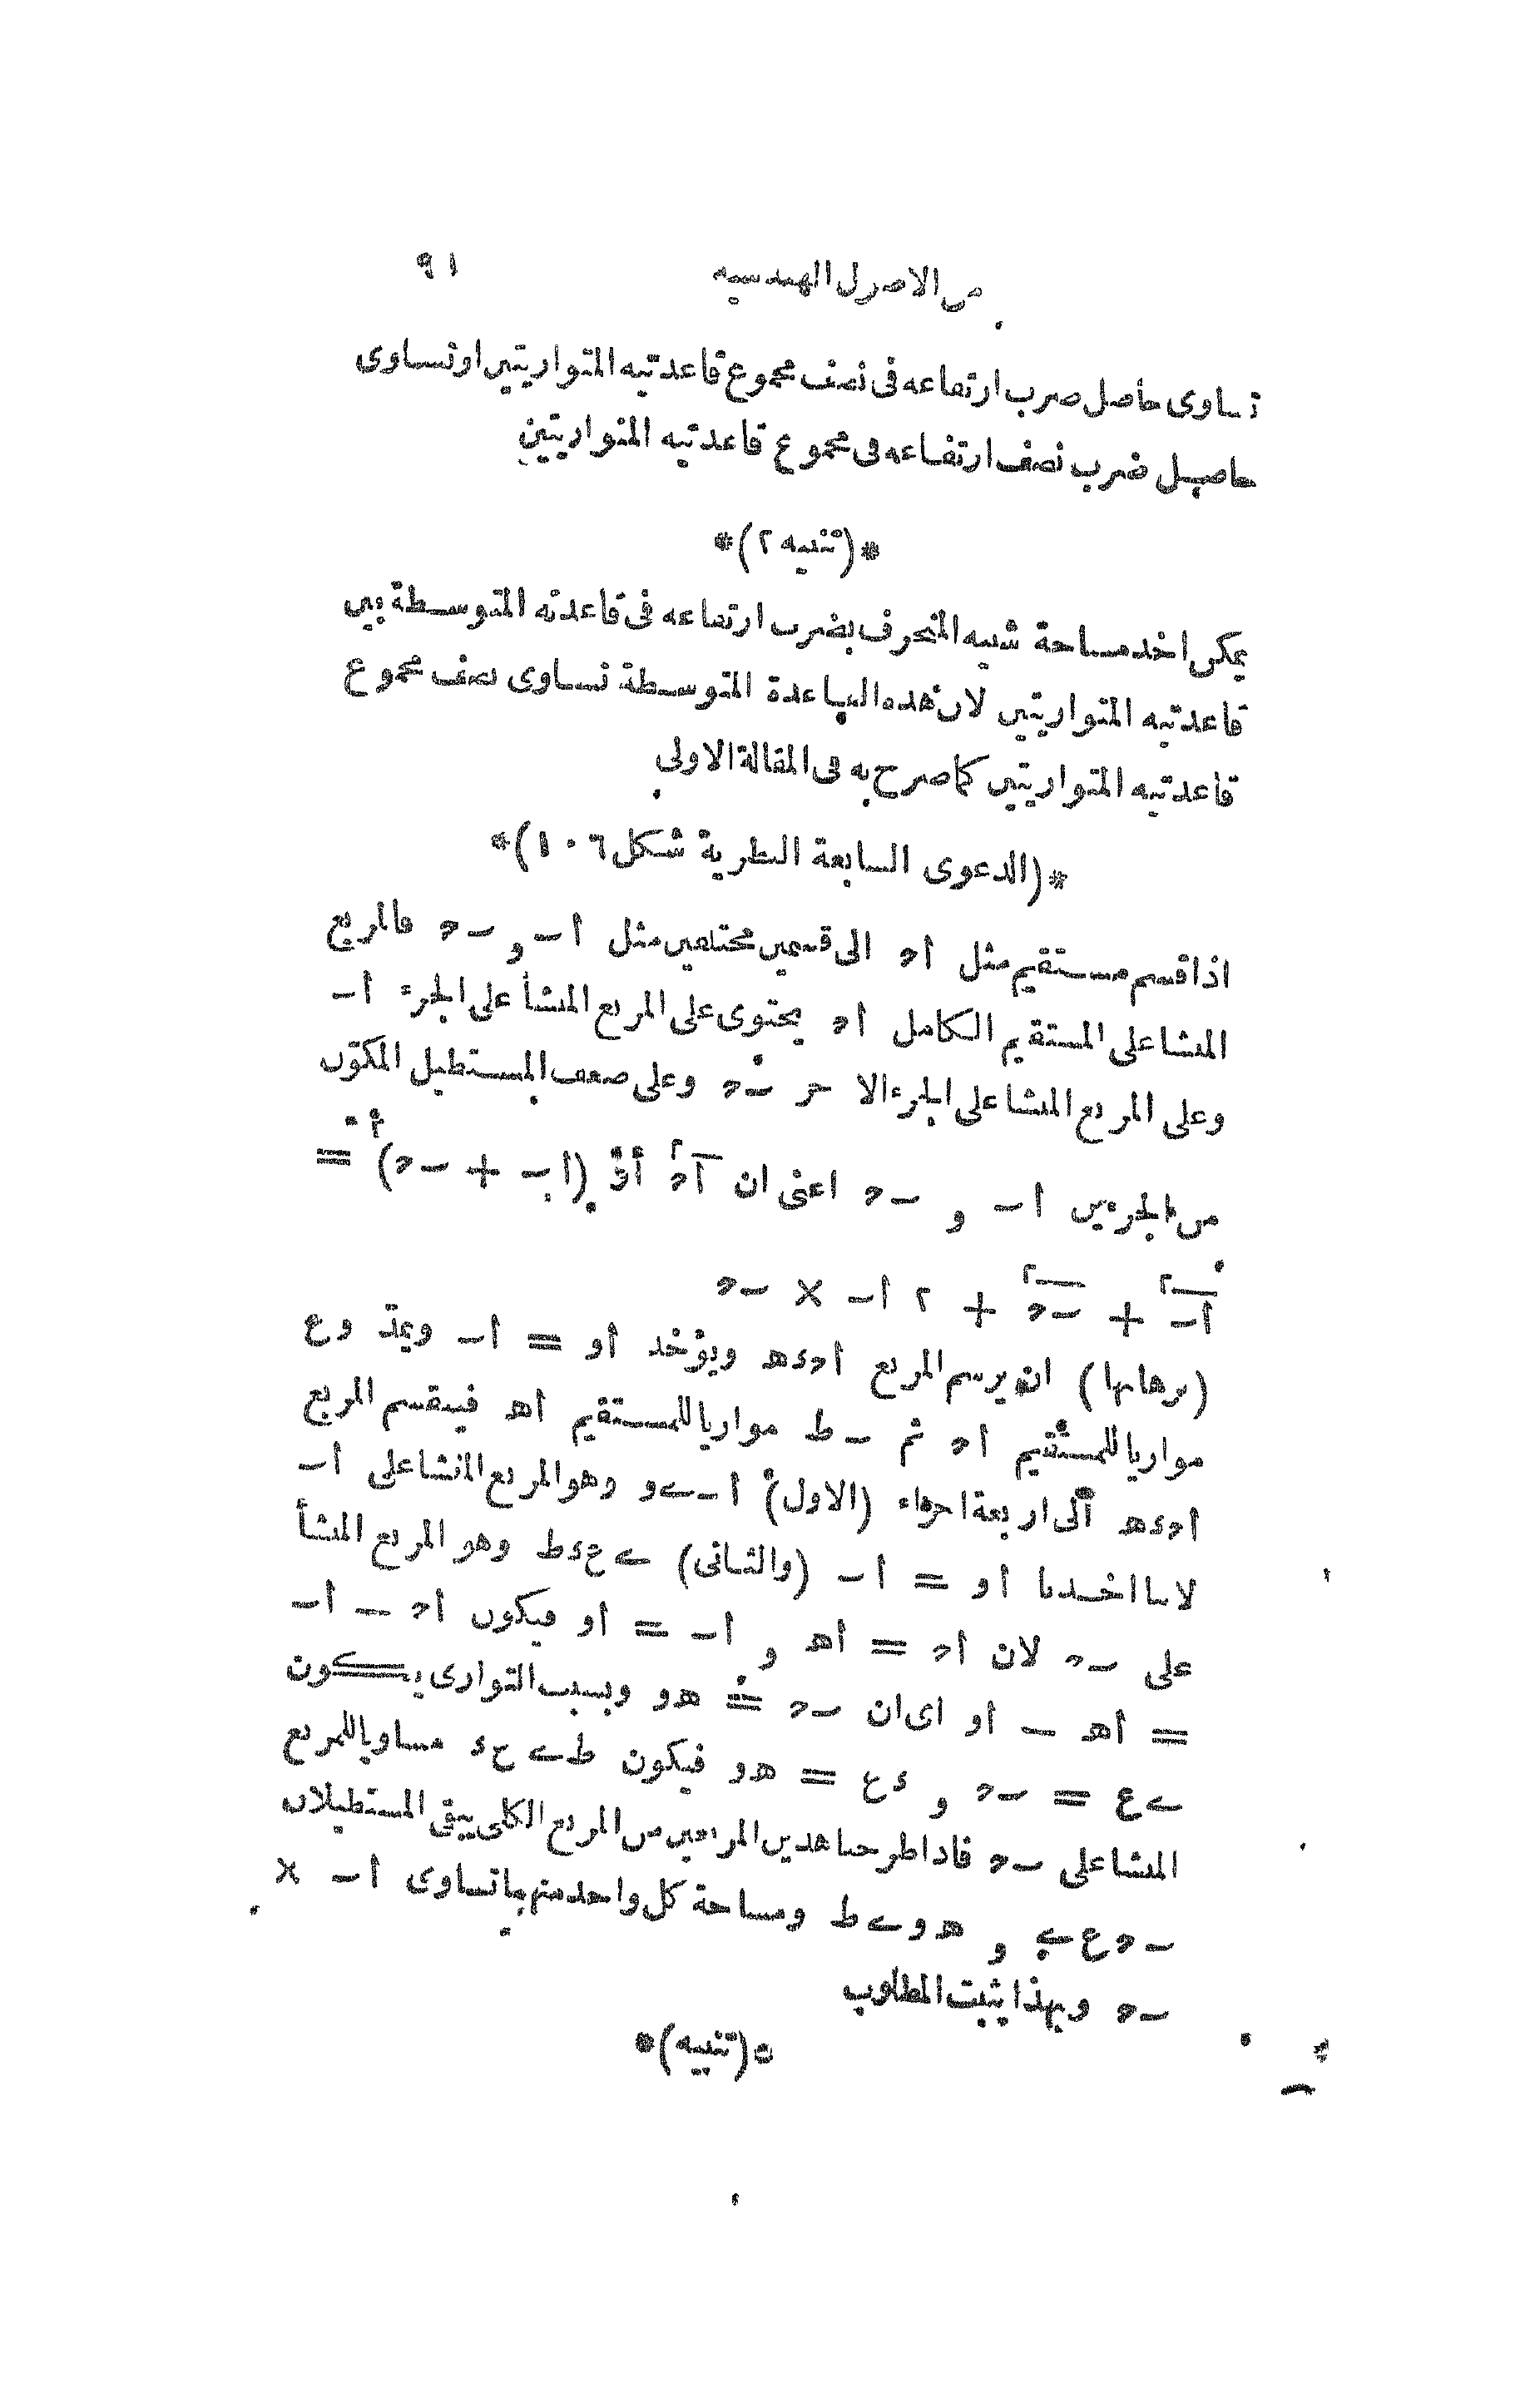 من الاصول الهندسيه ٩١
تساوى حاصل ضرب ارتفاعه فى نصف مجموع قاعدتيه المتوازيتين او تساوى
حاصل ضرب نصف ارتفاعه فى مجموع قاعدتيه المتوازيتين
*(تنبيه ٢)*
يمكن اخذ مساحة شبيه المنحرف بضرب ارتفاعه فى قاعدته المتوسطة بين
قاعدتيه المتوازيتين لان هذه القاعدة المتوسطة تساوى نصف مجموع
قاعدتيه المتوازيتين كما صرح به فى المقالة الاولى
*(الدعوى السابعة النظرية شكل ١٠٦)*
اذا قسم مستقيم مثل أح الى قسمين مختلفين مثل أب و بح فالمربع
المنشا على المستقيم الكامل أح يحتوى على المربع المنشأ على الجزء أب
وعلى المربع المنشا على الجزء الاخر بح وعلى ضعف المستطيل المكوّن
من الجزءين أب و بح اعنى ان أح٢ أو (اب + بح)٢ =
أب٢ + بح٢ + ٢ أب × بح
(برهانها) ان يرسم المربع أحدھ ويؤخذ أو = أب ويمدّ وع
موازيا للمستقيم أح ثم بط موازيا للمستقيم أھ فينقسم المربع
أحدھ الى اربعة اجزاء (الاول) أبىو وهو المربع المنشا على أب
لاننا اخذنا أو = أب (والثانى) ىعدط وهو المربع المنشأ
على بح لان أح = أھ و أب = أو فيكون أح – أب
= أھ – أو اى ان بح = ھو وبسبب التوازى يكون
ىع = بح و دع = ھو فيكون طىعد مساويا للمربع
المنشا على بح فاذا طرحنا هذين المربعين من المربع الكلى يبقى المستطيلان
بحعى و ھوىط ومساحة كل واحد منهما تساوى أب ×
بح وبهذا يثبت المطلوب
*(تنبيه)*